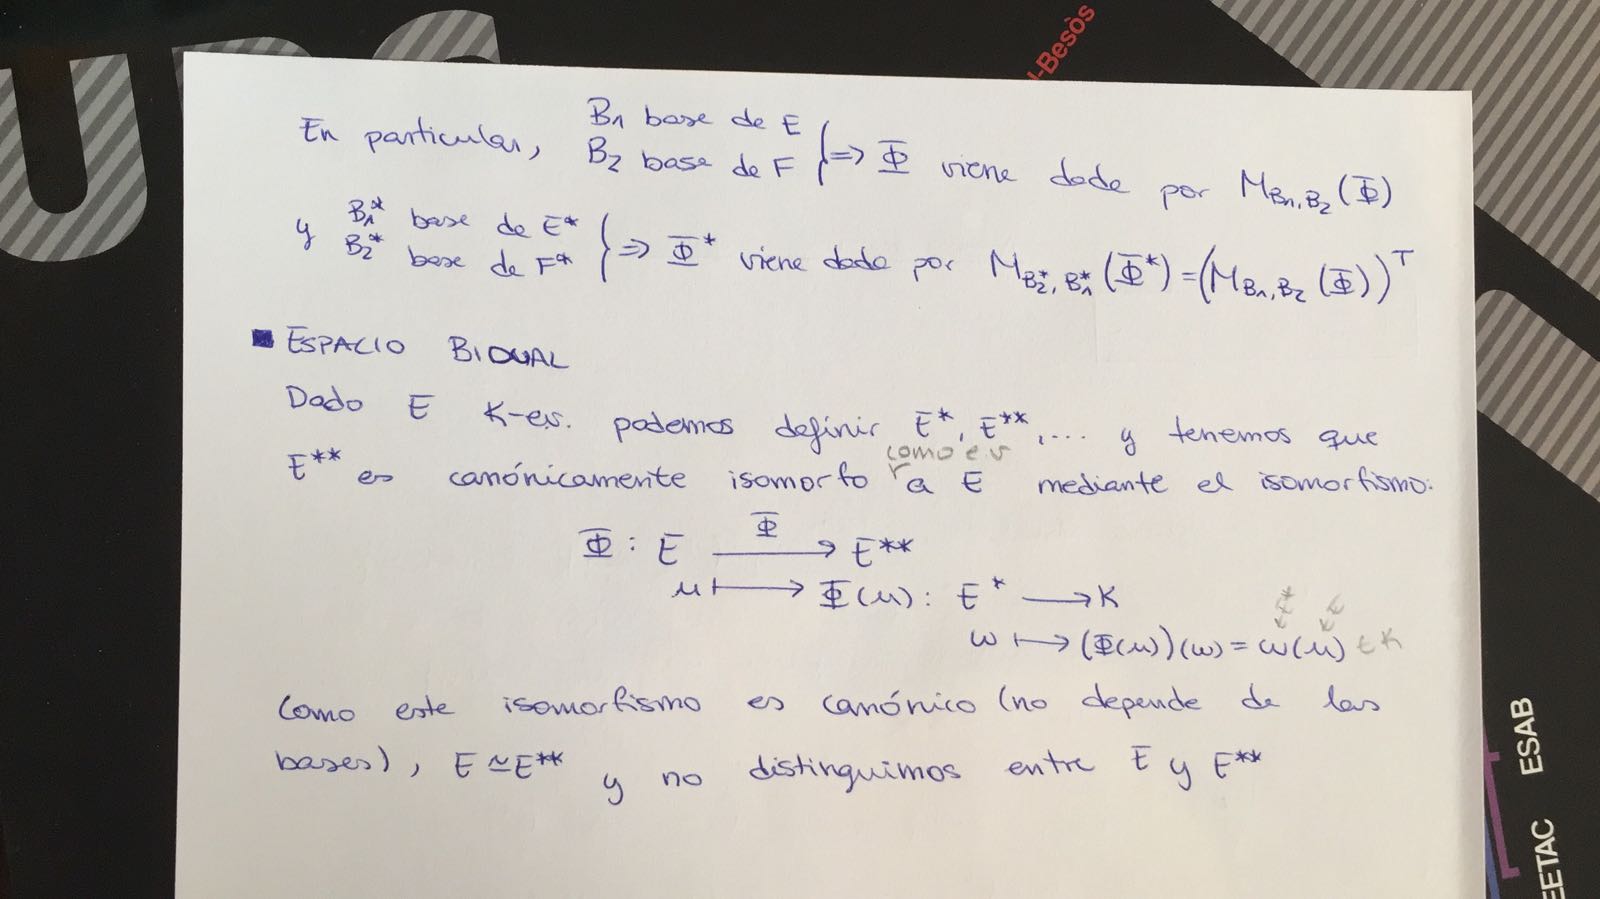 UPC
l-Besòs
En particular, B₁ base de E
B₂ base de F } => Φ viene dada por M_{B₁,B₂}(Φ)
y B₁* base de E*
B₂* base de F* } => Φ* viene dada por M_{B₂*,B₁*}(Φ*) = (M_{B₁,B₂}(Φ))^T
■ ESPACIO BIDUAL
Dado E K-e.v. podemos definir E*, E**, ... y tenemos que
como e.v
E** es canónicamente isomorfo a E mediante el isomorfismo:
Φ: E —Φ→ E**
u ↦ Φ(u): E* → K
E* E
ω ↦ (Φ(u))(ω) = ω(u) ∈ K
Como este isomorfismo es canónico (no depende de las
bases), E ≃ E** y no distinguimos entre E y E**
ESAB
EETAC